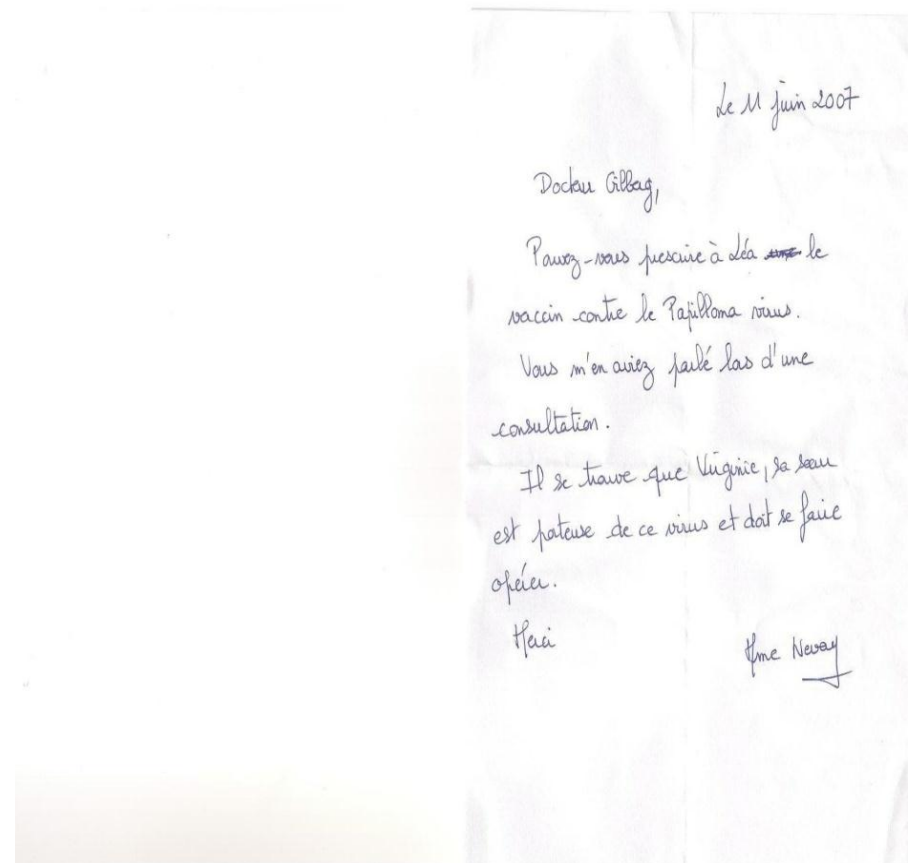 Le 11 juin 2007
Docteur Gilberg,
Pouvez-vous prescrire à Léa le
vaccin contre le Papilloma virus.
Vous m'en aviez parlé lors d'une
consultation.
Il se trouve que Virginie, sa soeur
est porteuse de ce virus et doit se faire
opérer.
Merci
Mme